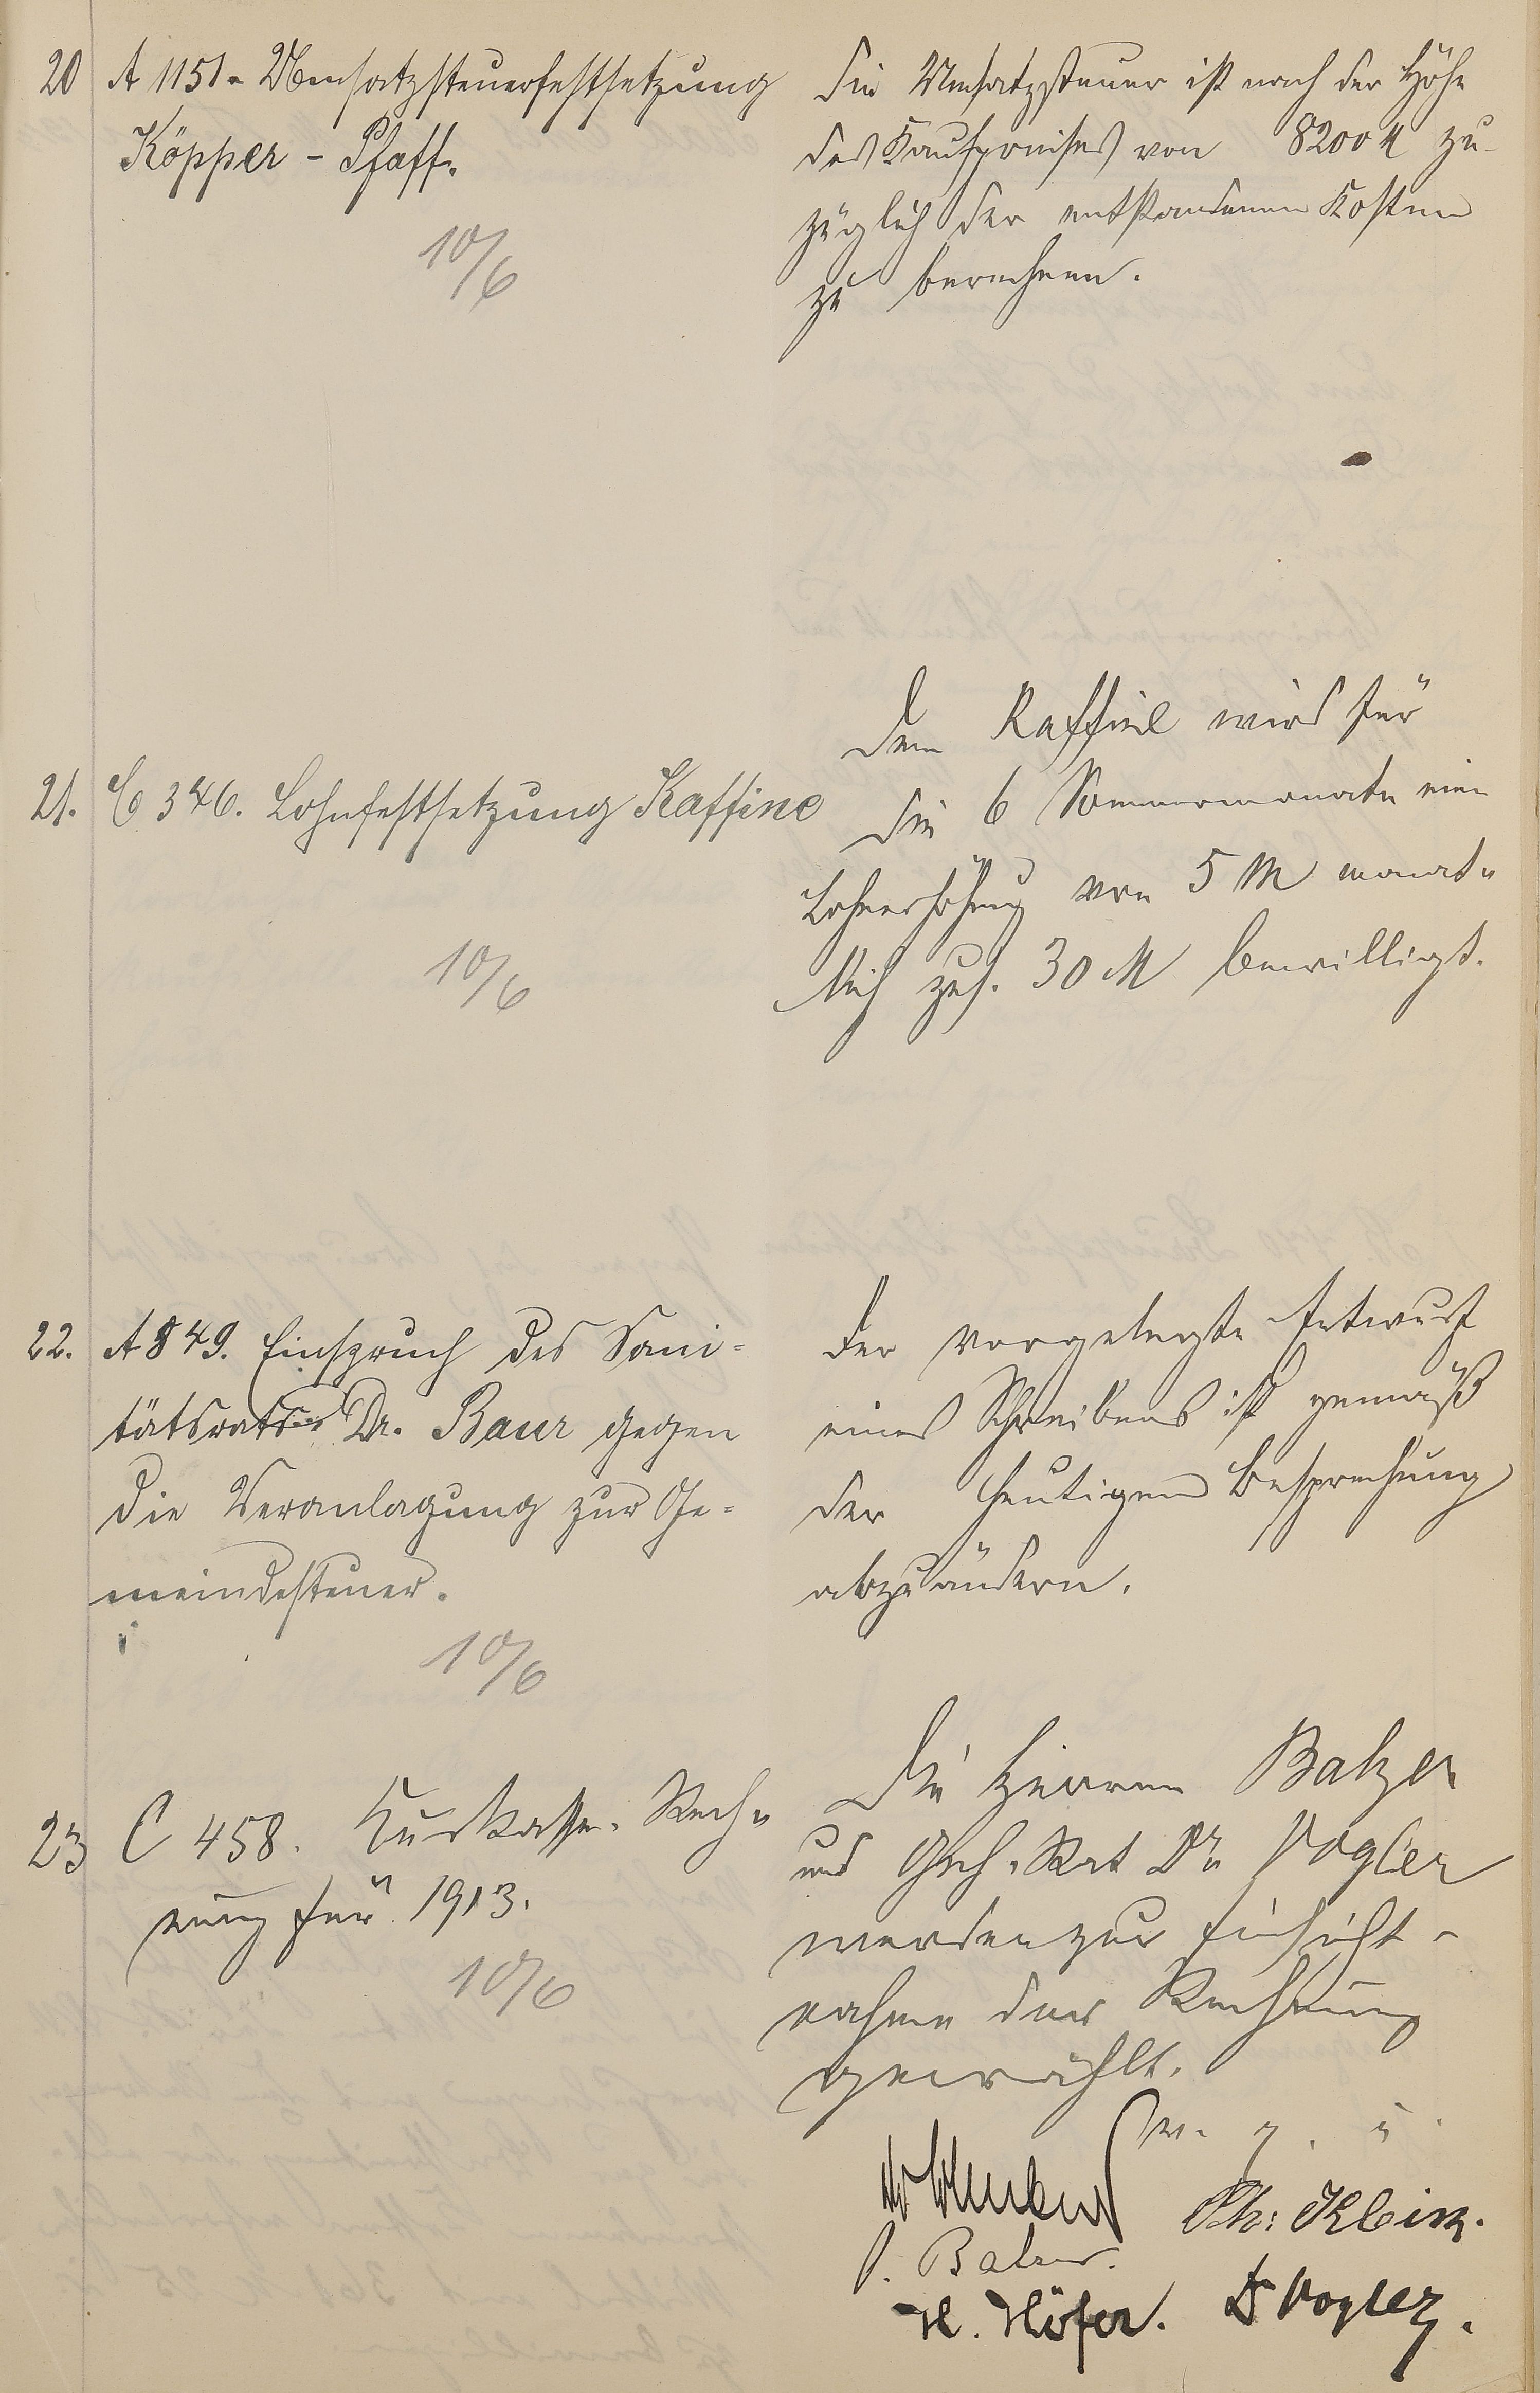 20 A 1151. Umsatzsteuerfestsetzung
Köpper - Pfaff.
10/6
Die Umsatzsteuer ist nach der Höhe
des Kaufpreises von 8200 M zu-
züglich der entstandenen Kosten
zu berechnen.
21. C 346. Lohnfestsetzung Kaffine
10/6
Dem Kaffine wird für
die 6 Sommermonate eine
Lohnerhöhung von 5 M monat-
lich zus. 30 M bewilligt.
22. A 849. Einspruch des Sani-
tätsrats Dr. Baur gegen
die Veranlagung zur Ge-
meindesteuer.
10/6
Der vorgelegte Entwurf
eines Schreibens ist gemäß
der heutigen Besprechung
abzuändern.
23 C 458. Kurkasse-Rech-
nung für 1913.
10/6
Die Herren Balzer
und Geh. Rat Dr. Vogler
werden zur Einsicht-
nahme der Rechnung
gewählt.
v. g. u.
Ph: Klein.
Balzer.
H. Höfer. Dr Vogler.